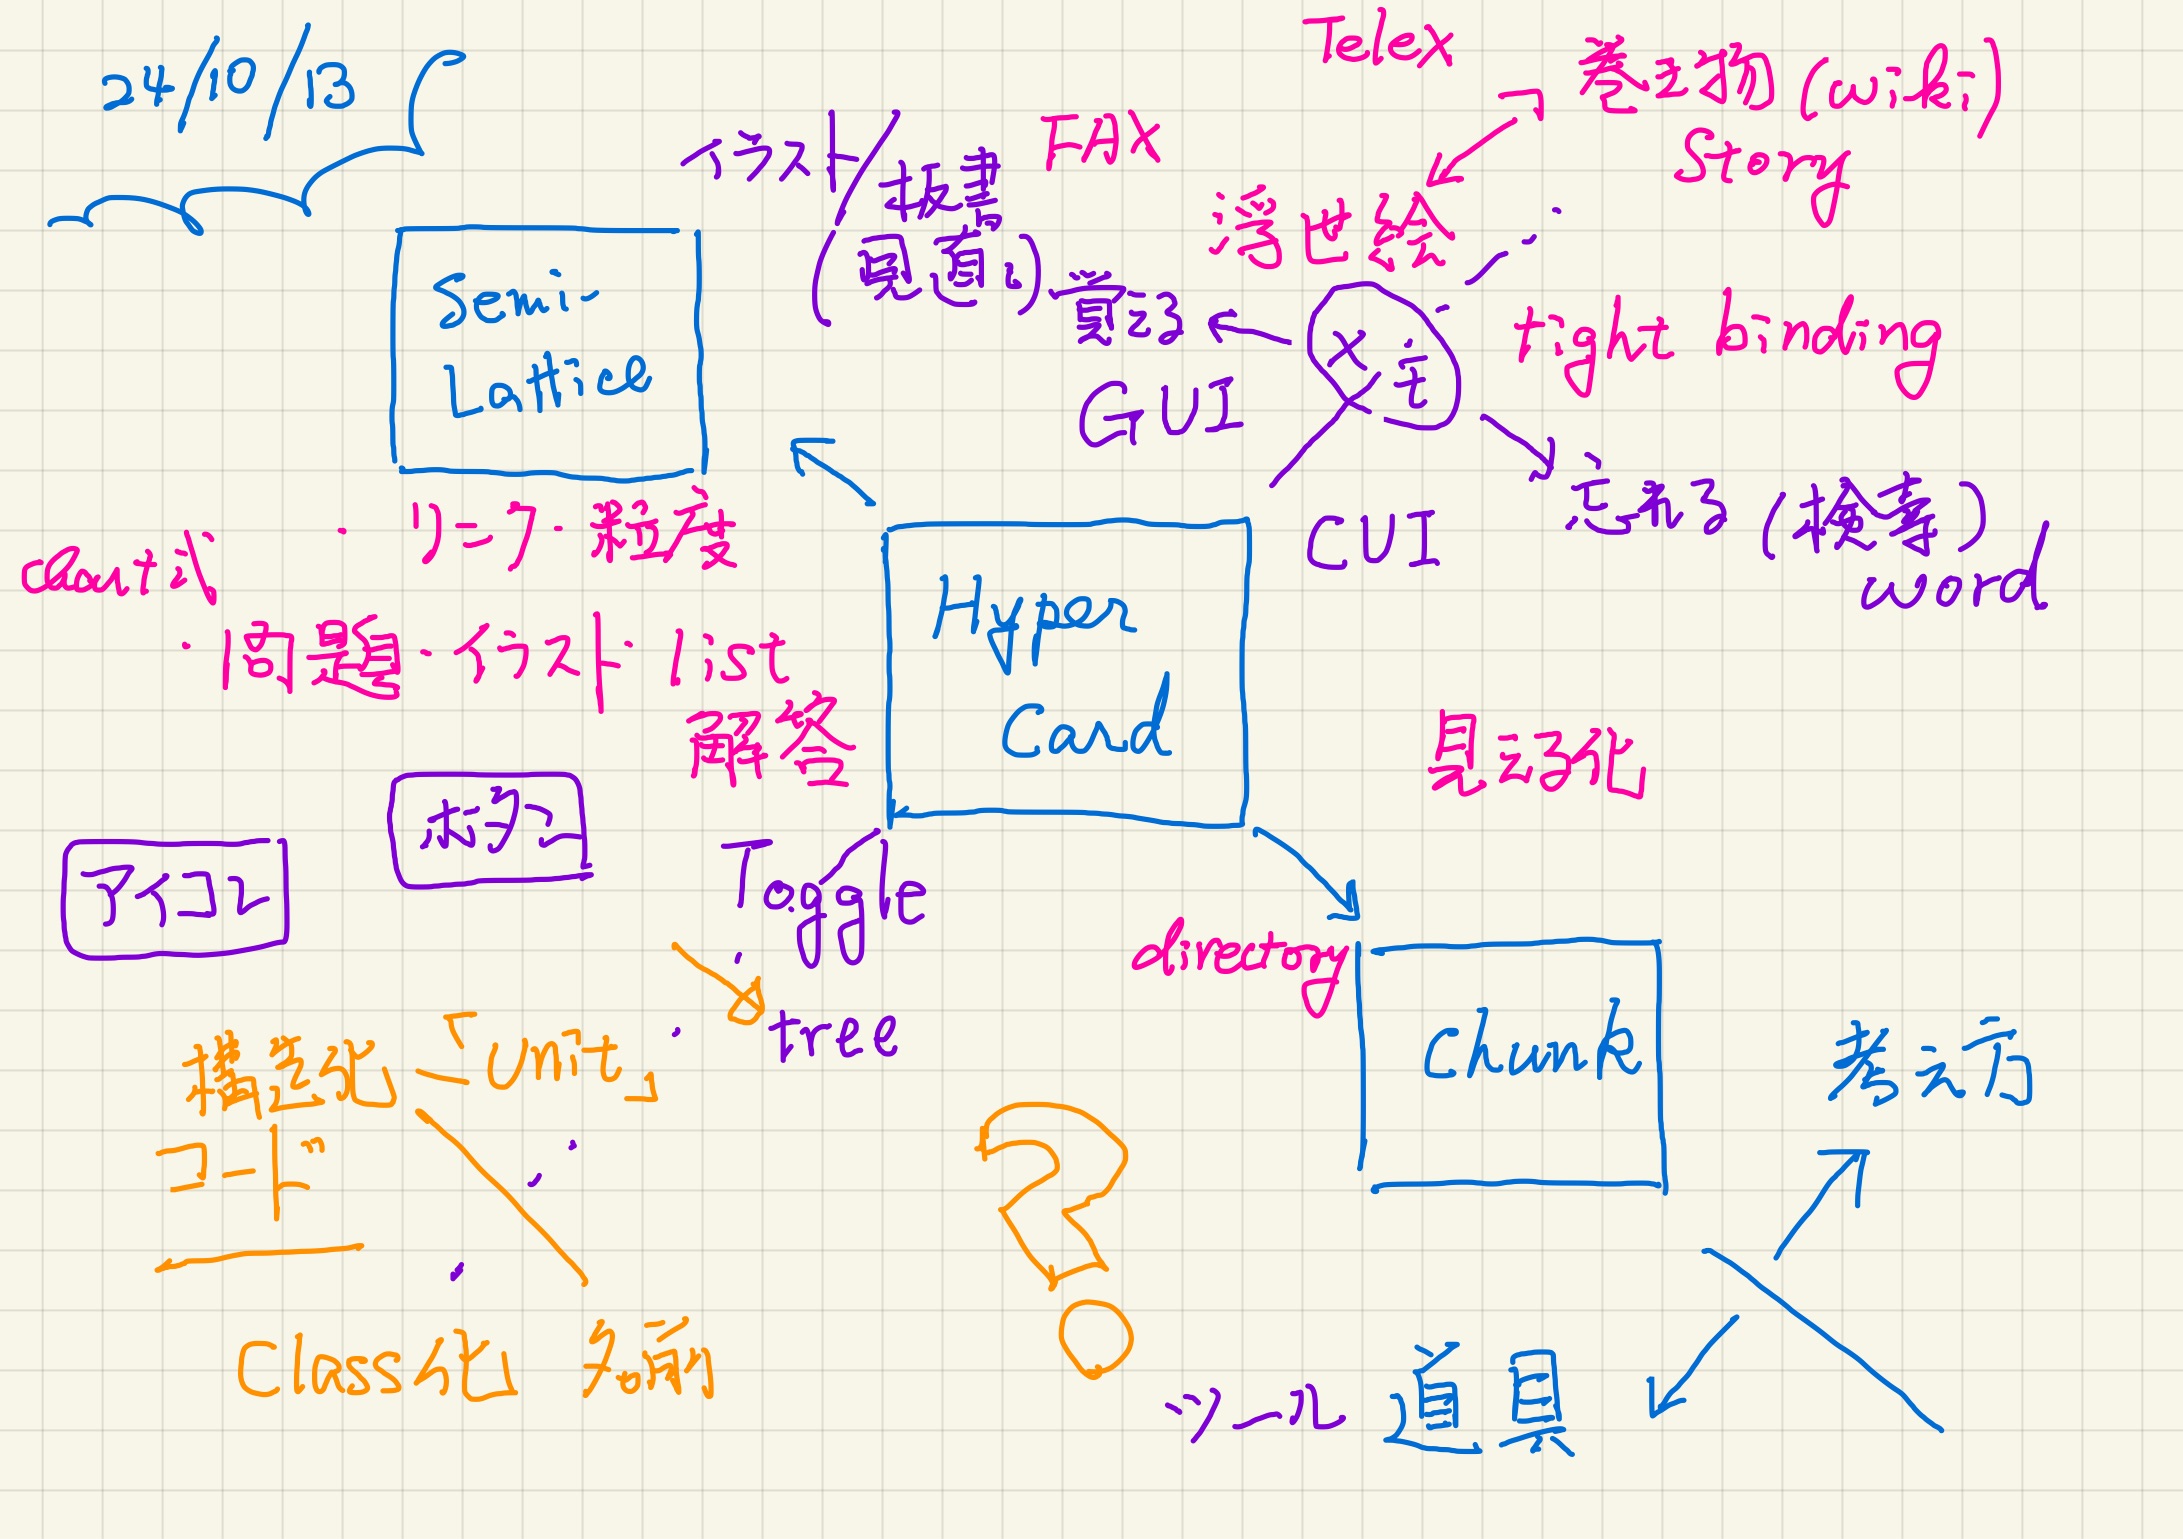 24/10/13
Telex
巻き物 (wiki)
Story
イラスト/板書
(見直し)
FAX
浮世絵
Semi-
Lattice
覚える
メモ
tight binding
GUI
忘れる (検索)
word
CUI
リンク・粒度
chart式
・問題・イラスト list
解答
Hyper
Card
見える化
ボタン
アイコン
Toggle
tree
directory
Chunk
考え方
構造化
「Unit」
コード
Class化 名前
?
ツール 道具